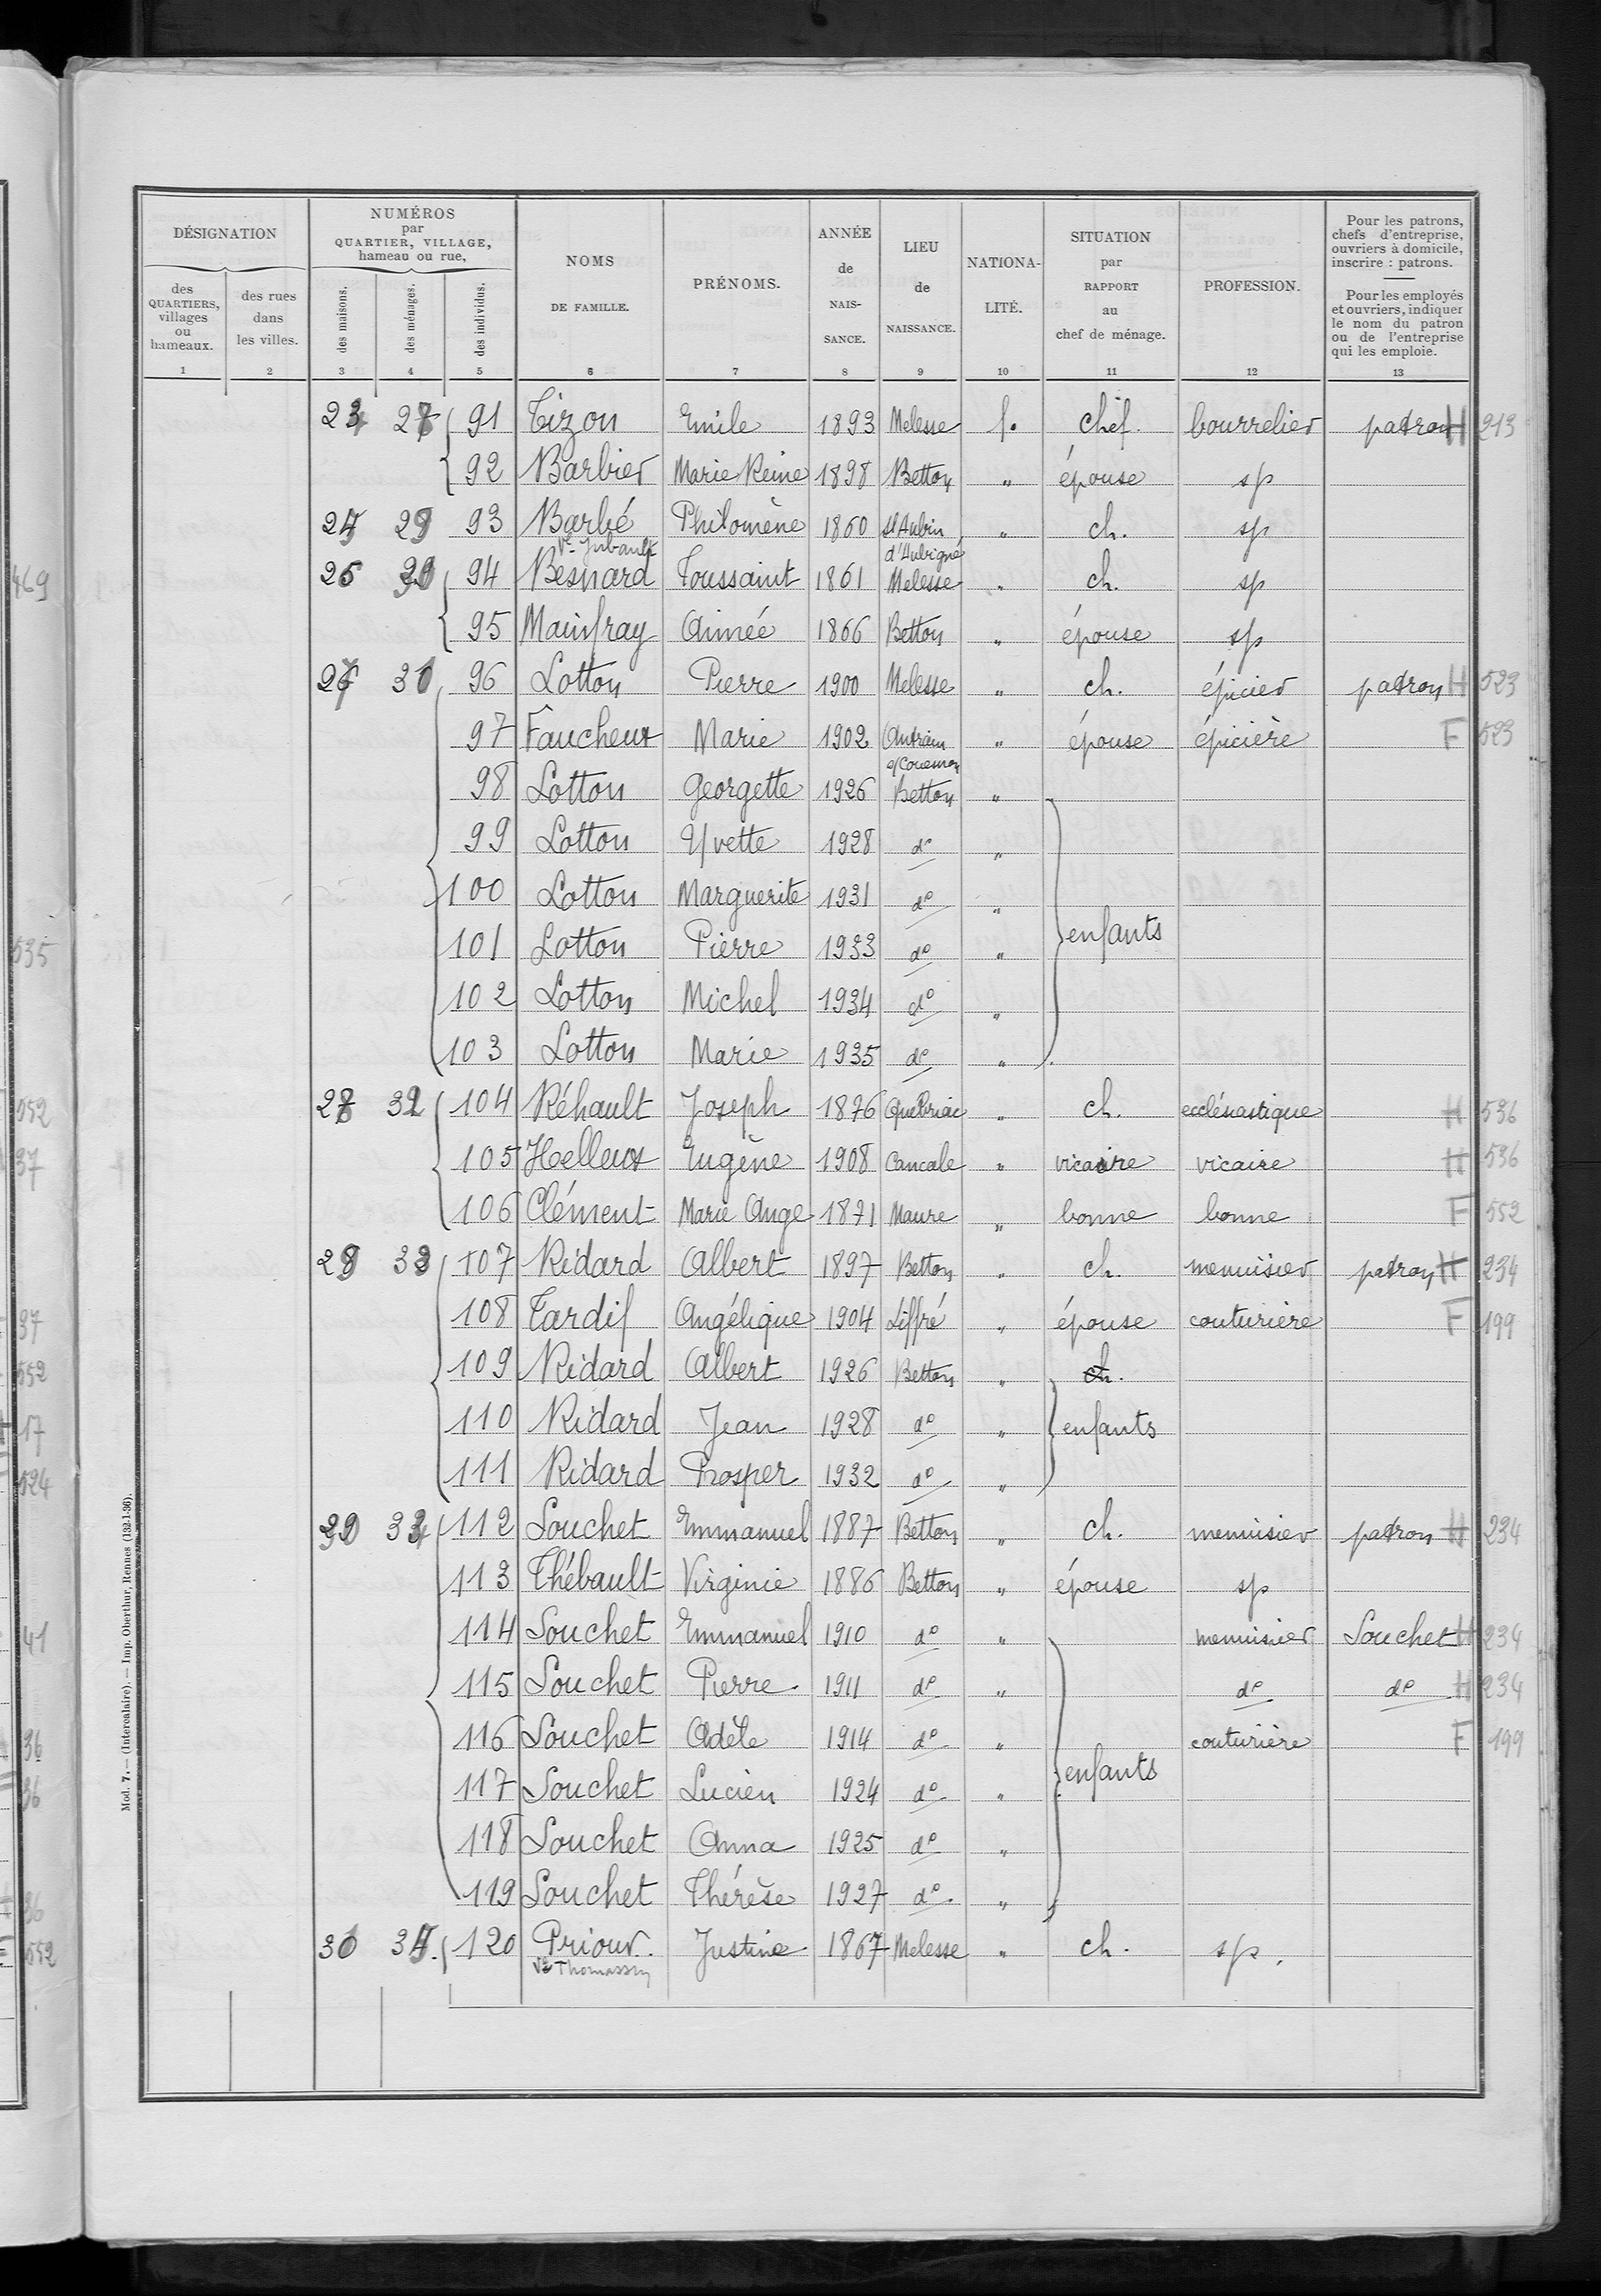 DÉSIGNATION
des QUARTIERS, villages ou hameaux.
des rues dans les villes.
NUMÉROS par QUARTIER, VILLAGE, hameau ou rue,
des maisons.
des ménages.
des individus.
NOMS DE FAMILLE.
PRÉNOMS.
ANNÉE de NAIS- SANCE.
LIEU de NAISSANCE.
NATIONA- LITÉ.
SITUATION par RAPPORT au chef de ménage.
PROFESSION.
Pour les patrons, chefs d'entreprise, ouvriers à domicile, inscrire : patrons.
Pour les employés et ouvriers, indiquer le nom du patron ou de l'entreprise qui les emploie.
1 2 3 4 5 6 7 8 9 10 11 12 13
91 Tizon Emile 1893 Melesse f. chef. bourrelier patron H 213
92 Barbier Marie Reine 1898 Betton " épouse sp
93 Barbé Philomène 1860 St Aubin d'Aubigné " ch. sp
Ve Jubault
94 Besnard Toussaint 1861 Melesse " ch. sp
95 Mainfray Aimée 1866 Betton " épouse sp
96 Lotton Pierre 1900 Melesse " ch. épicier patron H 523
97 Faucheux Marie 1902 Antrain s/Couesnon " épouse épicière F 523
98 Lotton Georgette 1926 Betton "
99 Lotton Yvette 1928 do "
100 Lotton Marguerite 1931 do "
101 Lotton Pierre 1933 do " enfants
102 Lotton Michel 1934 do "
103 Lotton Marie 1935 do "
104 Réhault Joseph 1876 Québriac " ch. ecclésiastique H 536
105 Helleux Eugène 1908 Cancale " vicaire vicaire H 536
106 Clément Marie Ange 1871 Maure " bonne bonne F 552
107 Ridard Albert 1897 Betton " ch. menuisier patron H 234
108 Tardif Angélique 1904 Liffré " épouse couturière F 199
109 Ridard Albert 1926 Betton " ch.
110 Ridard Jean 1928 do " enfants
111 Ridard Prosper 1932 do "
112 Souchet Emmanuel 1887 Betton " ch. menuisier patron H 234
113 Thébault Virginie 1886 Betton " épouse sp
114 Souchet Emmanuel 1910 do " menuisier Souchet H 234
115 Souchet Pierre 1911 do " do do H 234
116 Souchet Adèle 1914 do " couturière F 199
117 Souchet Lucien 1924 do " enfants
118 Souchet Anna 1925 do "
119 Souchet Thérèse 1927 do "
120 Priour. Justine 1867 Melesse " ch. sp.
Ve Thomassin
Mod. 7. — (Intercalaire). — Imp. Oberthur, Rennes (132-1-36).
469
535
552
37
37
552
17
524
41
36
36
36
552